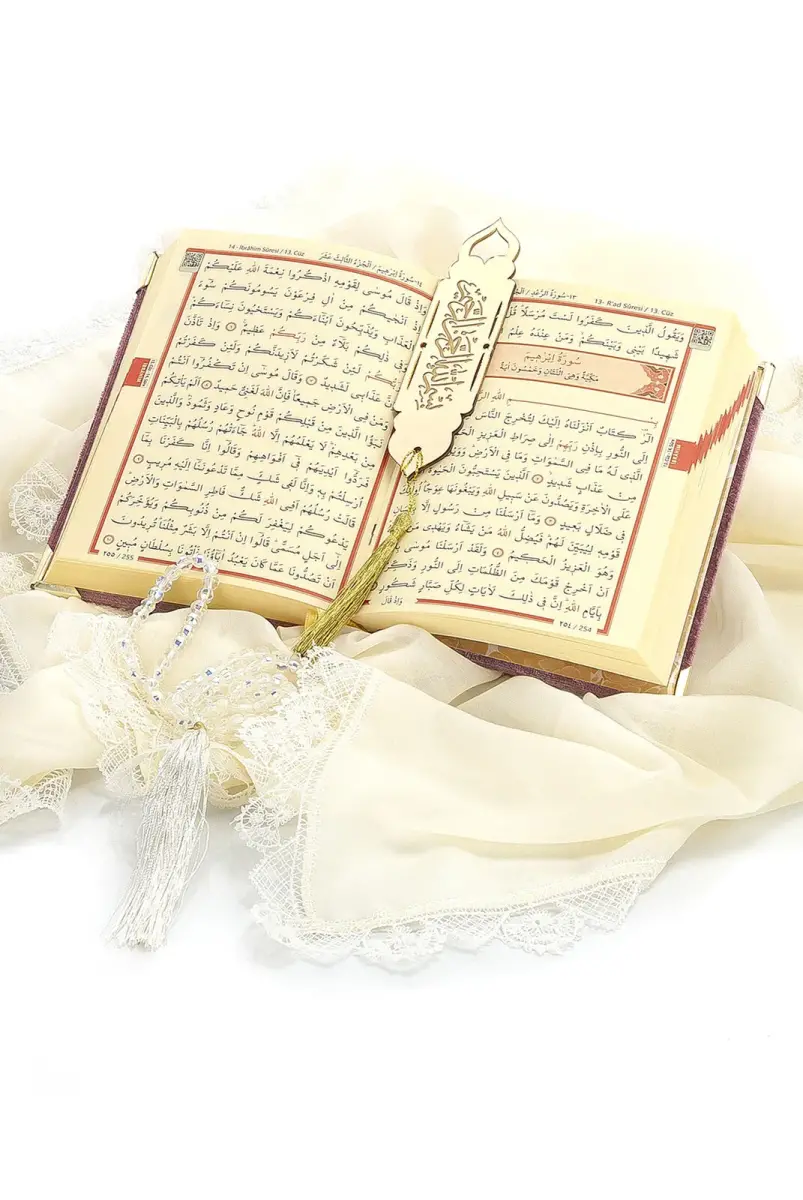 13- R'ad Sûresi / 13. Cüz ١٣-سُورَةُ الرَّعْدِ /
وَيَقُولُ الَّذِينَ كَفَرُوا لَسْتَ مُرْسَلًا قُلْ
شَهِيدًا بَيْنِي وَبَيْنَكُمْ وَمَنْ عِنْدَهُ عِلْمُ
سُورَةُ اِبْرٰهِيمَ
مَكِّيَّةٌ وَهِيَ اثْنَتَانِ وَخَمْسُونَ اٰيَةً
بِسْمِ اللّٰهِ
الٓرٰ كِتَابٌ اَنْزَلْنَاهُ اِلَيْكَ لِتُخْرِجَ النَّاسَ
اِلَى النُّورِ بِاِذْنِ رَبِّهِمْ اِلٰى صِرَاطِ الْعَزِيزِ
اللّٰهِ الَّذِي لَهُ مَا فِي السَّمٰوَاتِ وَمَا فِي الْاَرْضِ
مِنْ عَذَابٍ شَدِيدٍ ۝ اَلَّذِينَ يَسْتَحِبُّونَ الْحَيٰوةَ
عَلَى الْاٰخِرَةِ وَيَصُدُّونَ عَنْ سَبِيلِ اللّٰهِ وَيَبْغُونَهَا عِوَجًا اُولٰٓئِكَ
فِي ضَلَالٍ بَعِيدٍ ۝ وَمَٓا اَرْسَلْنَا مِنْ رَسُولٍ اِلَّا
قَوْمِهِ لِيُبَيِّنَ لَهُمْ فَيُضِلُّ اللّٰهُ مَنْ يَشَٓاءُ وَيَهْدِي مَنْ
وَهُوَ الْعَزِيزُ الْحَكِيمُ ۝ وَلَقَدْ اَرْسَلْنَا مُوسٰى
اَنْ اَخْرِجْ قَوْمَكَ مِنَ الظُّلُمَاتِ اِلَى النُّورِ وَذَكِّرْهُمْ
بِاَيَّامِ اللّٰهِ اِنَّ فِي ذٰلِكَ لَاٰيَاتٍ لِكُلِّ صَبَّارٍ شَكُورٍ
وَاِذْ قَالَ
٢٥٤ / 254
14- İbrâhîm Sûresi / 13. Cüz ١٤-سُورَةُ اِبْرٰهِيمَ / اَلْجُزْءُ الثَّالِثَ عَشَرَ
وَاِذْ قَالَ مُوسٰى لِقَوْمِهِ اذْكُرُوا نِعْمَةَ اللّٰهِ عَلَيْكُمْ
اِذْ اَنْجٰيكُمْ مِنْ اٰلِ فِرْعَوْنَ يَسُومُونَكُمْ سُٓوءَ
الْعَذَابِ وَيُذَبِّحُونَ اَبْنَٓاءَكُمْ وَيَسْتَحْيُونَ نِسَٓاءَكُمْ
وَفِي ذٰلِكُمْ بَلَٓاءٌ مِنْ رَبِّكُمْ عَظِيمٌ ۝ وَاِذْ تَاَذَّنَ
رَبُّكُمْ لَئِنْ شَكَرْتُمْ لَاَزِيدَنَّكُمْ وَلَئِنْ كَفَرْتُمْ
اِنَّ عَذَابِي لَشَدِيدٌ ۝ وَقَالَ مُوسٰٓى اِنْ تَكْفُرُٓوا اَنْتُمْ
وَمَنْ فِي الْاَرْضِ جَمِيعًا فَاِنَّ اللّٰهَ لَغَنِيٌّ حَمِيدٌ ۝ اَلَمْ يَأْتِكُمْ
نَبَؤُا الَّذِينَ مِنْ قَبْلِكُمْ قَوْمِ نُوحٍ وَعَادٍ وَثَمُودَ وَالَّذِينَ
مِنْ بَعْدِهِمْ لَا يَعْلَمُهُمْ اِلَّا اللّٰهُ جَٓاءَتْهُمْ رُسُلُهُمْ بِالْبَيِّنَاتِ
فَرَدُّٓوا اَيْدِيَهُمْ فِٓي اَفْوَاهِهِمْ وَقَالُٓوا اِنَّا كَفَرْنَا بِمَٓا
اُرْسِلْتُمْ بِهِ وَاِنَّا لَفِي شَكٍّ مِمَّا تَدْعُونَنَٓا اِلَيْهِ مُرِيبٍ ۝
قَالَتْ رُسُلُهُمْ اَفِي اللّٰهِ شَكٌّ فَاطِرِ السَّمٰوَاتِ وَالْاَرْضِ
يَدْعُوكُمْ لِيَغْفِرَ لَكُمْ مِنْ ذُنُوبِكُمْ وَيُؤَخِّرَكُمْ
اِلٰٓى اَجَلٍ مُسَمًّى قَالُٓوا اِنْ اَنْتُمْ اِلَّا بَشَرٌ مِثْلُنَا تُرِيدُونَ
اَنْ تَصُدُّونَا عَمَّا كَانَ يَعْبُدُ اٰبَٓاؤُنَا فَأْتُونَا بِسُلْطَانٍ مُبِينٍ ۝
٢٥٥ / 255
بسم الله الرحمن الرحيم